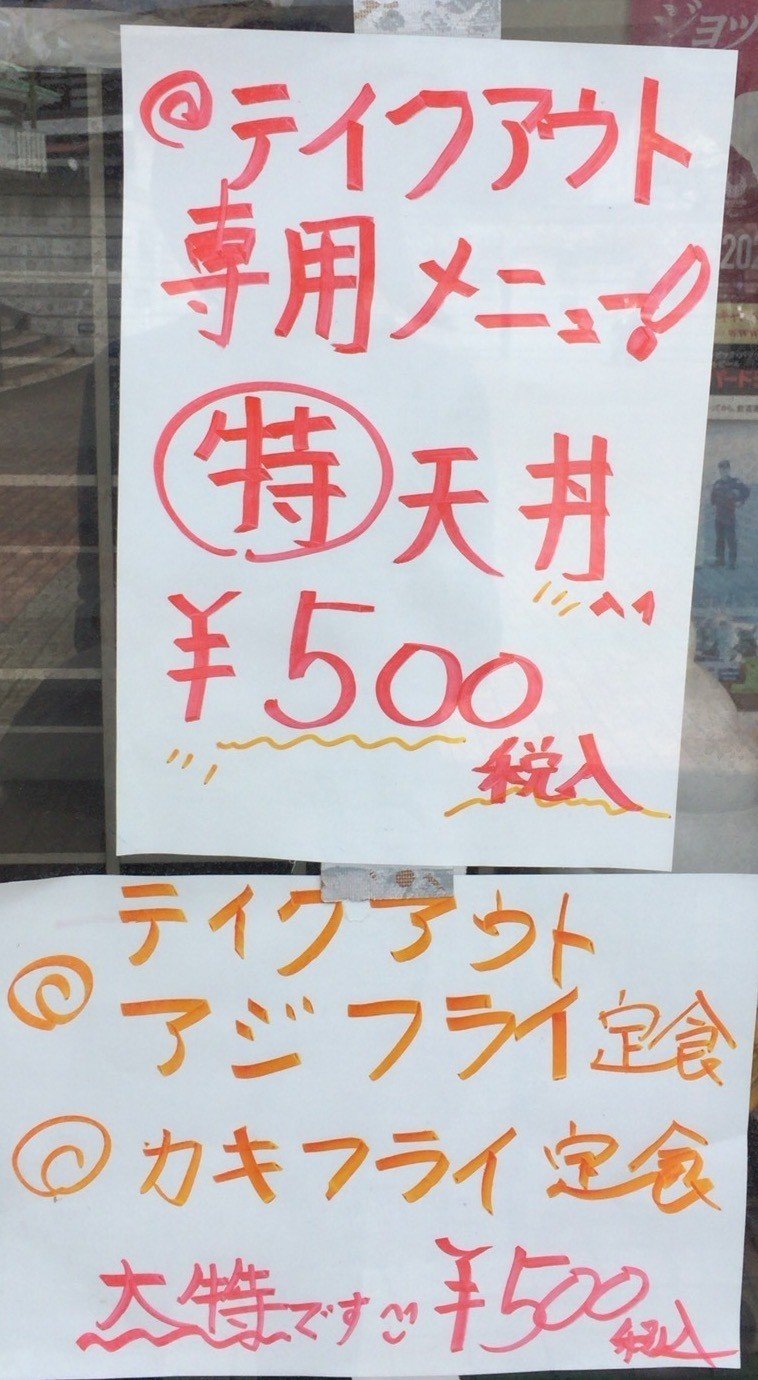 @テイクアウト
専用メニュー!
特 天丼
¥500
税入
テイクアウト
@アジフライ定食
@カキフライ定食
大特です ¥500
税込
ジョッ
202